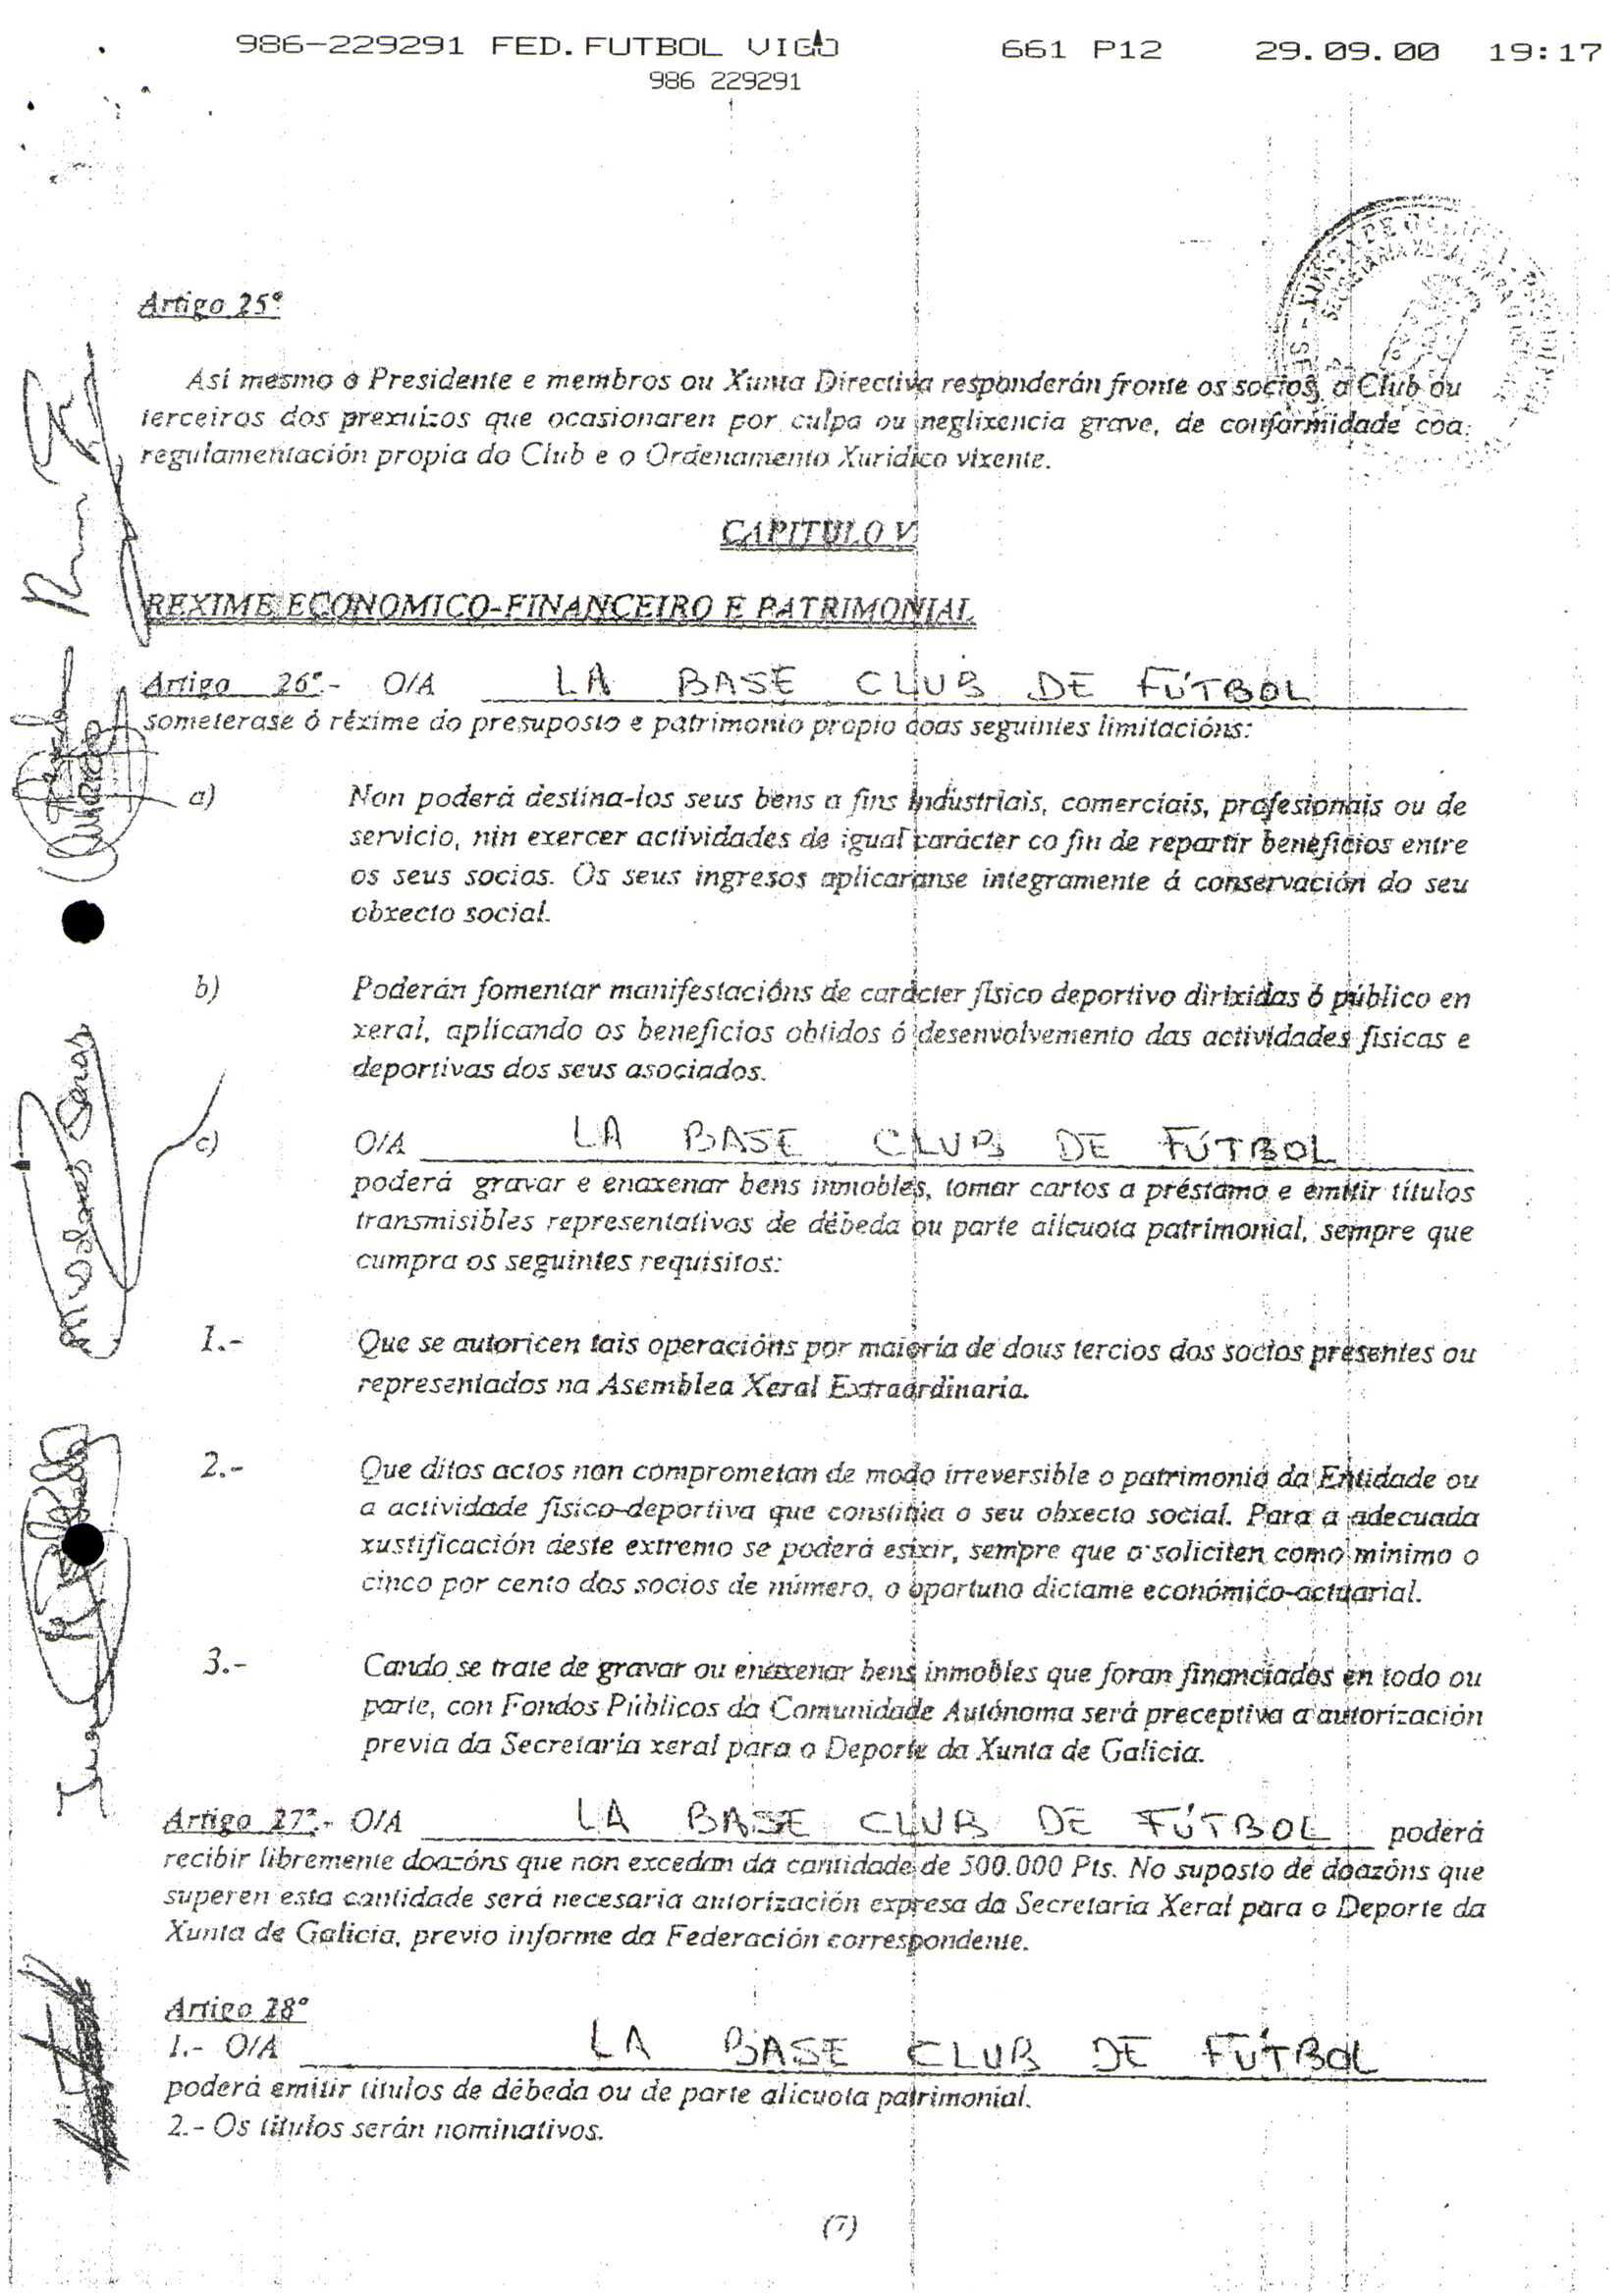 986-229291 FED.FUTBOL VIGO 661 P12 29.09.00 19:17
986 229291
Artigo 25º
Así mesmo o Presidente e membros ou Xunta Directiva responderán fronte os socios, o Club ou
terceiros dos prexuízos que ocasionaren por culpa ou neglixencia grave, de conformidade coa
regulamentación propia do Club e o Ordenamento Xurídico vixente.
CAPITULO V
REXIME ECONOMICO-FINANCEIRO E PATRIMONIAL
Artigo 26º.- O/A LA BASE CLUB DE FÚTBOL
someterase ó réxime do presuposto e patrimonio propio coas seguintes limitacións:
a) Non poderá destina-los seus bens a fins industriais, comerciais, profesionais ou de
servicio, nin exercer actividades de igual carácter co fin de repartir beneficios entre
os seus socios. Os seus ingresos aplicaranse integramente á conservación do seu
obxecto social.
b) Poderán fomentar manifestacións de carácter físico deportivo dirixidas ó público en
xeral, aplicando os beneficios obtidos ó desenvolvemento das actividades físicas e
deportivas dos seus asociados.
c) O/A LA BASE CLUB DE FÚTBOL
poderá gravar e enaxenar bens inmobles, tomar cartos a préstamo e emitir títulos
transmisibles representativos de débeda ou parte alícuota patrimonial, sempre que
cumpra os seguintes requisitos:
1.- Que se autoricen tais operacións por maioría de dous tercios dos socios presentes ou
representados na Asemblea Xeral Extraordinaria.
2.- Que ditos actos non comprometan de modo irreversible o patrimonio da Entidade ou
a actividade físico-deportiva que constitúa o seu obxecto social. Para a adecuada
xustificación deste extremo se poderá esixir, sempre que o soliciten como mínimo o
cinco por cento dos socios de número, o oportuno dictame económico-actuarial.
3.- Cando se trate de gravar ou enaxenar bens inmobles que foran financiados en todo ou
parte, con Fondos Públicos da Comunidade Autónoma será preceptiva a autorización
previa da Secretaría xeral para o Deporte da Xunta de Galicia.
Artigo 27º.- O/A LA BASE CLUB DE FÚTBOL poderá
recibir libremente doazóns que non excedan da cantidade de 500.000 Pts. No suposto de doazóns que
superen esta cantidade será necesaria autorización expresa da Secretaría Xeral para o Deporte da
Xunta de Galicia, previo informe da Federación correspondente.
Artigo 28º
1.- O/A LA BASE CLUB DE FÚTBOL
poderá emitir títulos de débeda ou de parte alícuota patrimonial.
2.- Os títulos serán nominativos.
(7)